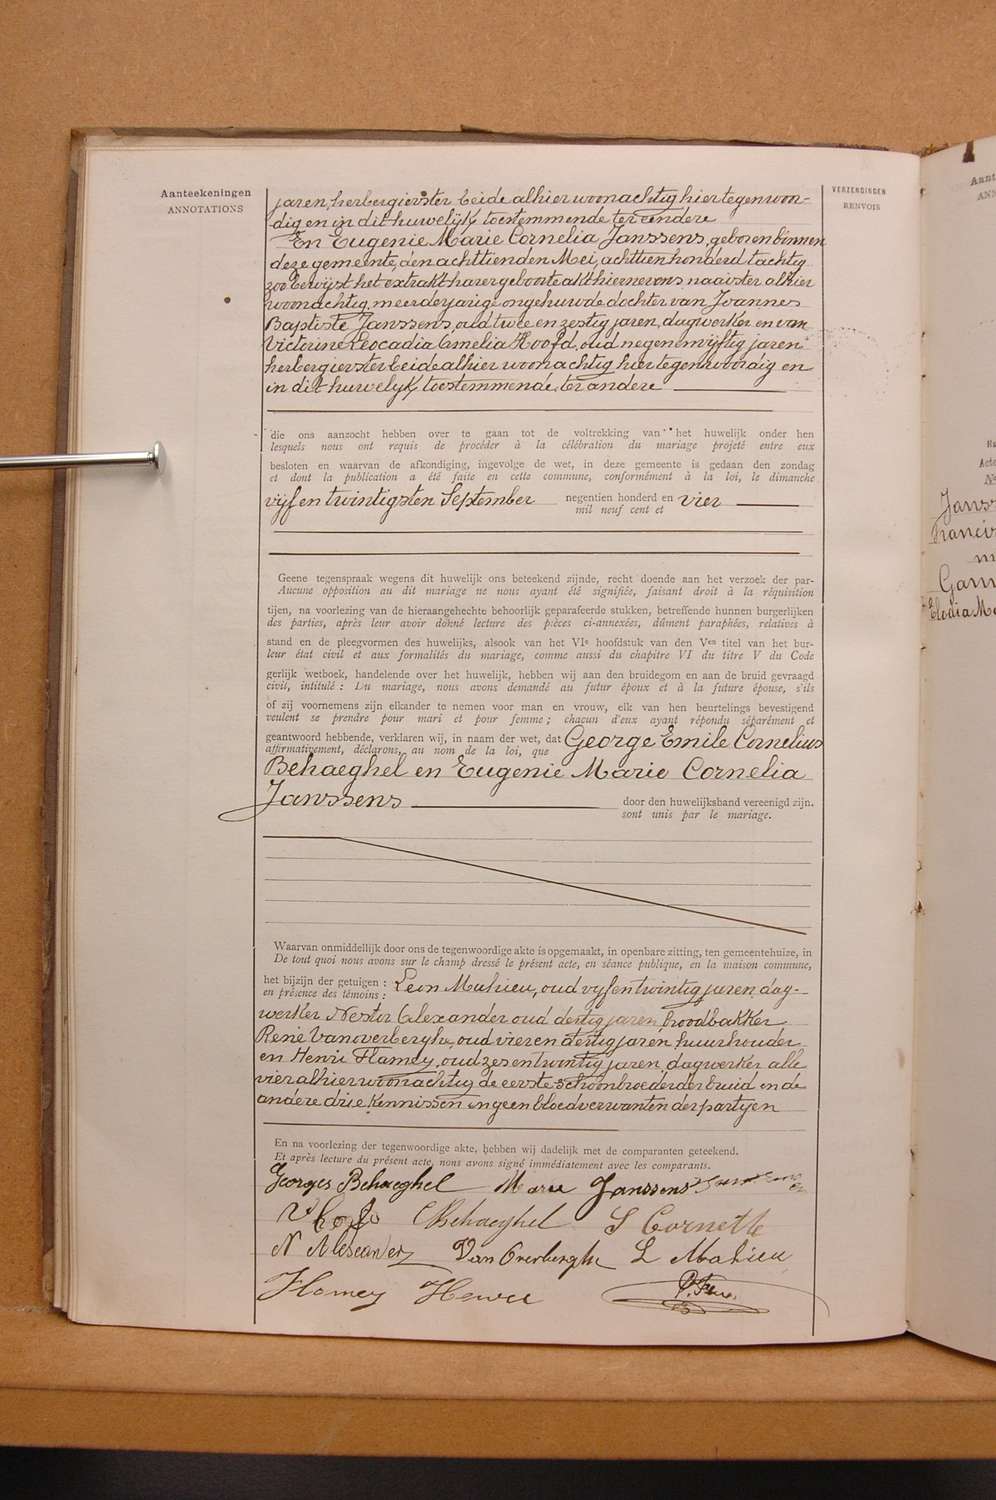 Aanteekeningen
ANNOTATIONS
VERZENDINGEN
RENVOIS
jaren, herbergierster beide alhier woonachtig hier tegenwoor-
dig en in dit huwelijk toestemmende ter eendere
En Eugenie Marie Cornelia Janssens, geboren binnen
deze gemeente, den achttienden Mei, achttien honderd tachtig
zoo bewijst het extrakt harer geboorteakt hiernevens naaister alhier
woonachtig, meerderjarige ongehuwde dochter van Joannes
Baptiste Janssens, oud twee en zestig jaren, dagwerker en van
Victorine Leocadia Emelia Hoofd, oud negen en vijftig jaren
herbergierster beide alhier woonachtig hier tegenwoordig en
in dit huwelijk toestemmende, ter andere
die ons aanzocht hebben over te gaan tot de voltrekking van het huwelijk onder hen
lesquels nous ont requis de procéder à la célébration du mariage projeté entre eux
besloten en waarvan de afkondiging, ingevolge de wet, in deze gemeente is gedaan den zondag
et dont la publication a été faite en cette commune, conformément à la loi, le dimanche
vijf en twintigsten September negentien honderd en vier
mil neuf cent et
Geene tegenspraak wegens dit huwelijk ons beteekend zijnde, recht doende aan het verzoek der par-
Aucune opposition au dit mariage ne nous ayant été signifiée, faisant droit à la réquisition
tijen, na voorlezing van de hieraangehechte behoorlijk geparafeerde stukken, betreffende hunnen burgerlijken
des parties, après leur avoir donné lecture des pièces ci-annexées, dûment paraphées, relatives à
stand en de pleegvormen des huwelijks, alsook van het VIe hoofdstuk van den Ven titel van het bur-
leur état civil et aux formalités du mariage, comme aussi du chapitre VI du titre V du Code
gerlijk wetboek, handelende over het huwelijk, hebben wij aan den bruidegom en aan de bruid gevraagd
civil, intitulé : Du mariage, nous avons demandé au futur époux et à la future épouse, s'ils
of zij voornemens zijn elkander te nemen voor man en vrouw, elk van hen beurtelings bevestigend
veulent se prendre pour mari et pour femme ; chacun d'eux ayant répondu séparément et
geantwoord hebbende, verklaren wij, in naam der wet, dat George Emile Cornelius
affirmativement, déclarons, au nom de la loi, que
Behaeghel en Eugenie Marie Cornelia
Janssens door den huwelijksband vereenigd zijn.
sont unis par le mariage.
Waarvan onmiddellijk door ons de tegenwoordige akte is opgemaakt, in openbare zitting, ten gemeentehuize, in
De tout quoi nous avons sur le champ dressé le présent acte, en séance publique, en la maison commune,
het bijzijn der getuigen : Leon Mahieu, oud vijf en twintig jaren, dag-
en présence des témoins :
werker Nestor Alexander oud dertig jaren, broodbakker
René Vanoverberghe, oud vier en dertig jaren, huurhouder
en Henri Flamey, oud zes en twintig jaren, dagwerker alle
vier alhier woonachtig de eerste schoonbroeder der bruid en de
andere drie kennissen en geen bloedverwanten der partijen
En na voorlezing der tegenwoordige akte, hebben wij dadelijk met de comparanten geteekend.
Et après lecture du présent acte, nous avons signé immédiatement avec les comparants.
Georges Behaeghel Marie Janssens
Behaeghel S Cornette
N Alexander Van Overberghe L Mahieu
Flamey Henri
Janss
Francis
Gam
Elodia Ma